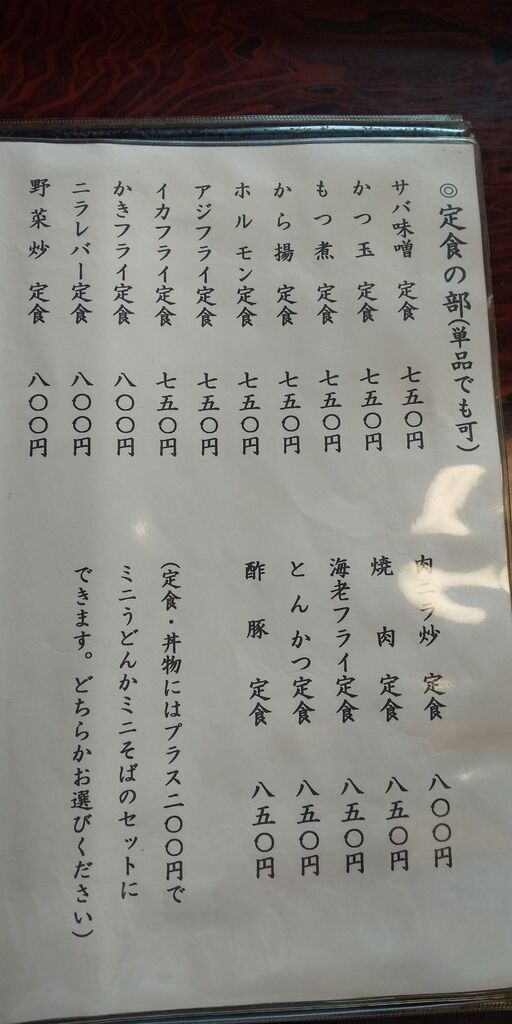 ◎定食の部(単品でも可)
サバ味噌 定食 七五〇円
かつ玉 定食 七五〇円
もつ煮 定食 七五〇円
から揚 定食 七五〇円
ホルモン定食 七五〇円
アジフライ定食 七五〇円
イカフライ定食 七五〇円
かきフライ定食 八〇〇円
ニラレバー定食 八〇〇円
野菜炒 定食 八〇〇円
肉ニラ炒 定食 八〇〇円
焼肉 定食 八五〇円
海老フライ定食 八五〇円
とんかつ定食 八五〇円
酢豚 定食 八五〇円
(定食・丼物にはプラス二〇〇円で
ミニうどんかミニそばのセットに
できます。どちらかお選びください)